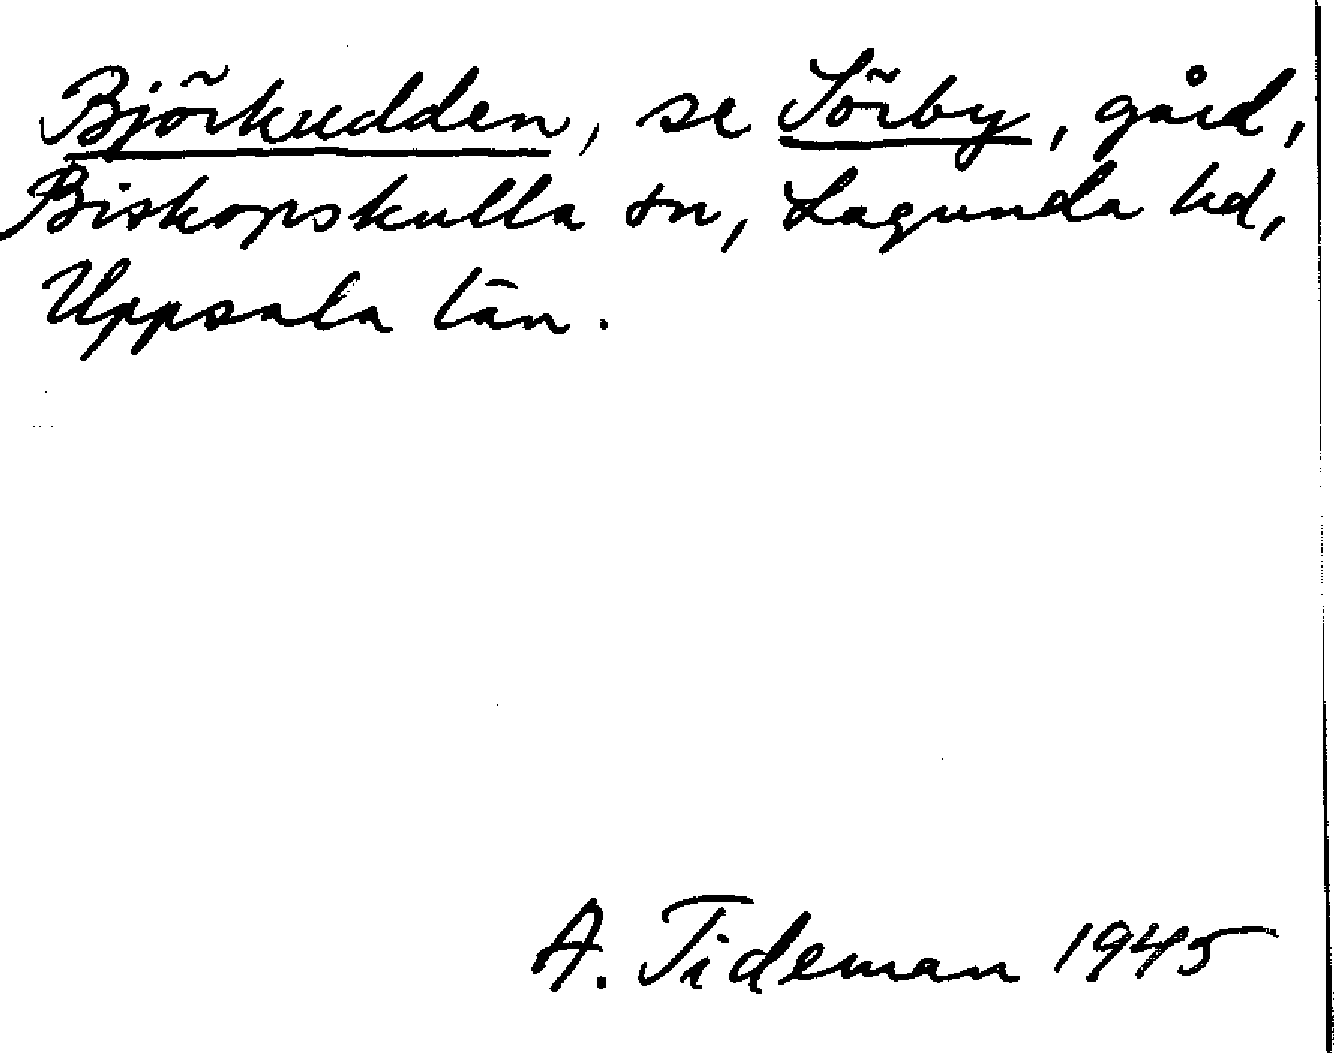 Björkudden, se Sörby, gård,
Biskopskulla sn, Lagunda hd,
Uppsala län.
A. Tideman 1945